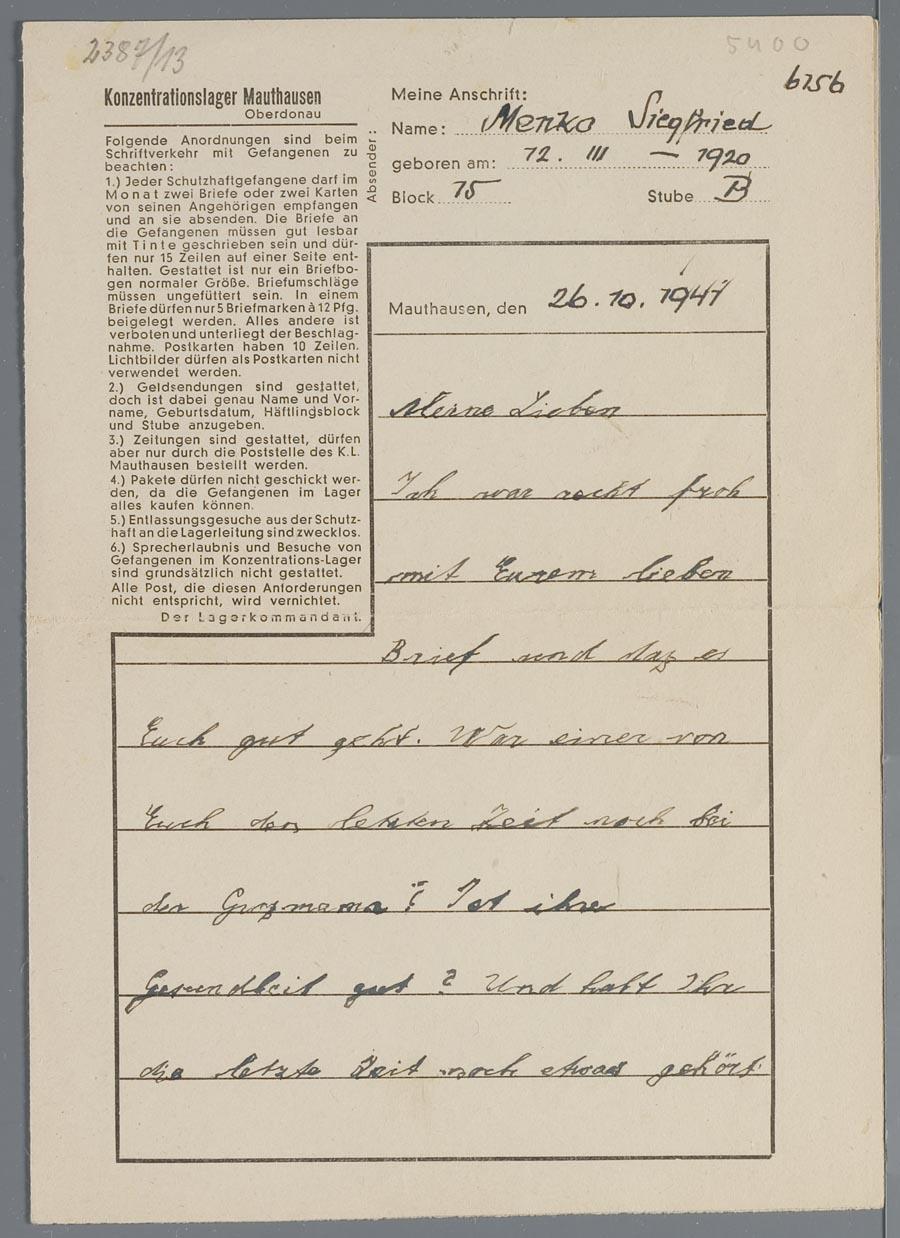 2387/13
5400
6256
Konzentrationslager Mauthausen
Oberdonau
Folgende Anordnungen sind beim
Schriftverkehr mit Gefangenen zu
beachten:
1.) Jeder Schutzhaftgefangene darf im
Monat zwei Briefe oder zwei Karten
von seinen Angehörigen empfangen
und an sie absenden. Die Briefe an
die Gefangenen müssen gut lesbar
mit Tinte geschrieben sein und dür-
fen nur 15 Zeilen auf einer Seite ent-
halten. Gestattet ist nur ein Briefbo-
gen normaler Größe. Briefumschläge
müssen ungefüttert sein. In einem
Briefe dürfen nur 5 Briefmarken à 12 Pfg.
beigelegt werden. Alles andere ist
verboten und unterliegt der Beschlag-
nahme. Postkarten haben 10 Zeilen.
Lichtbilder dürfen als Postkarten nicht
verwendet werden.
2.) Geldsendungen sind gestattet,
doch ist dabei genau Name und Vor-
name, Geburtsdatum, Häftlingsblock
und Stube anzugeben.
3.) Zeitungen sind gestattet, dürfen
aber nur durch die Poststelle des K.L.
Mauthausen bestellt werden.
4.) Pakete dürfen nicht geschickt wer-
den, da die Gefangenen im Lager
alles kaufen können.
5.) Entlassungsgesuche aus der Schutz-
haft an die Lagerleitung sind zwecklos.
6.) Sprecherlaubnis und Besuche von
Gefangenen im Konzentrations-Lager
sind grundsätzlich nicht gestattet.
Alle Post, die diesen Anforderungen
nicht entspricht, wird vernichtet.
Der Lagerkommandant.
Absender:
Meine Anschrift:
Name: Menko Siegfried
geboren am: 12. III — 1920
Block 15 Stube B
Mauthausen, den 26.10.1941
Meine Lieben
Ich war recht froh
mit Eurem lieben
Brief und daß es
Euch gut geht. War einer von
Euch der letzten Zeit noch bei
der Grozmama? Ist ihre
Gesundheit gut? Und habt Ihr
die letzte Zeit noch etwas gehört